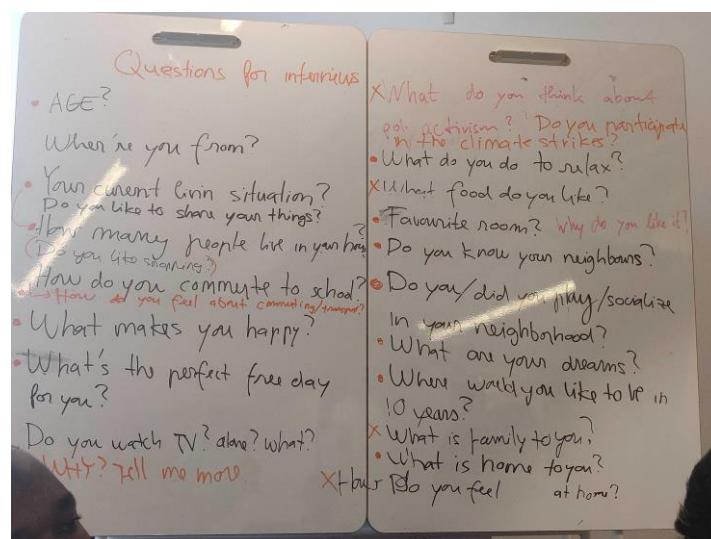 Questions for interviews
• AGE?
Where're you from?
• Your curent livin situation?
Do you like to share your things?
• How many people live in your
(Do you like shopping?)
How do you commute to school?
→ How do you feel about commuting/transport?
• What makes you happy?
• What's the perfect free day
for you?
Do you watch TV? alone? what?
WHY? Tell me more
X What do you think about
activism? Do you participate
in the climate strikes?
• What do you do to relax?
X What food do you like?
• Favourite room? Why do you like it?
• Do you know your neighbours?
• Do you/did you play/socialize
in your neighborhood?
• What are your dreams?
• Where would you like to be in
10 years?
X What is family to you?
• What is home to you?
X How Do you feel at home?